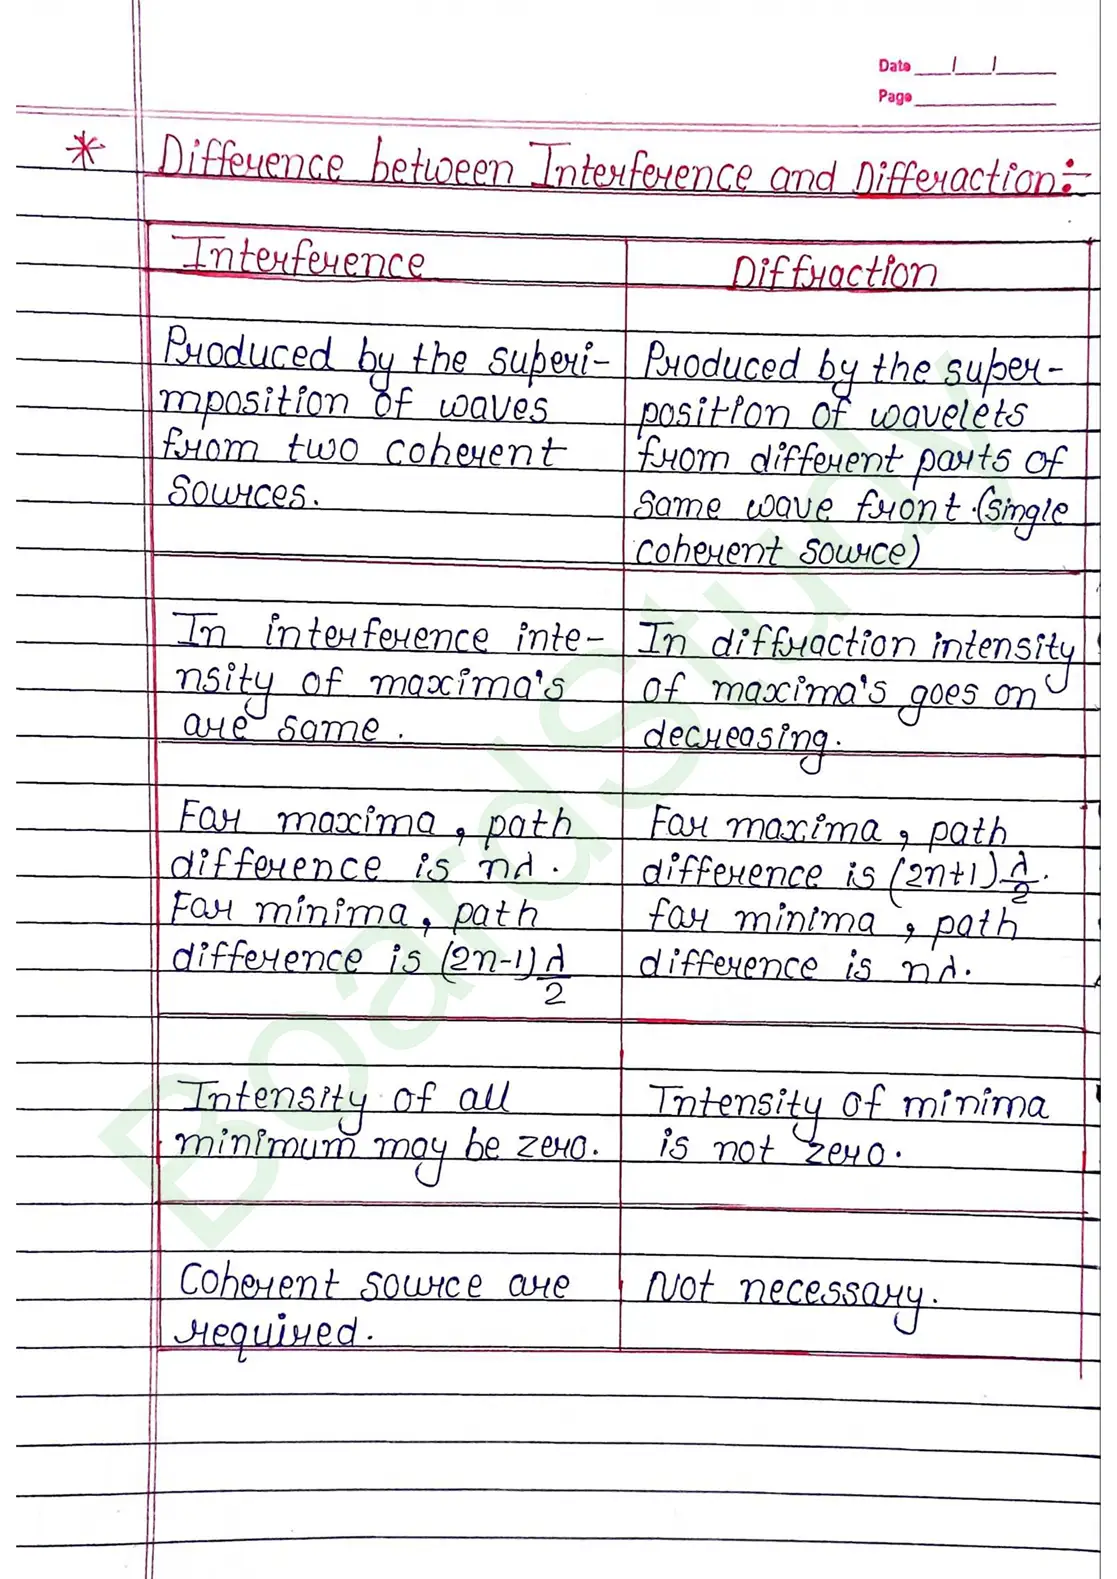 Date / /
Page
* Difference between Interference and Differaction:-
Interference
Diffraction
Produced by the superi-
mposition of waves
from two coherent
sources.
Produced by the super-
position of wavelets
from different parts of
same wave front.(single
coherent source)
In interference inte-
nsity of maxima's
are same.
In diffraction intensity
of maxima's goes on
decreasing.
For maxima, path
difference is nλ.
For minima, path
difference is (2n-1)λ/2
For maxima, path
difference is (2n+1)λ/2.
for minima, path
difference is nλ.
Intensity of all
minimum may be zero.
Intensity of minima
is not zero.
Coherent source are
required.
Not necessary.
BoardStudy